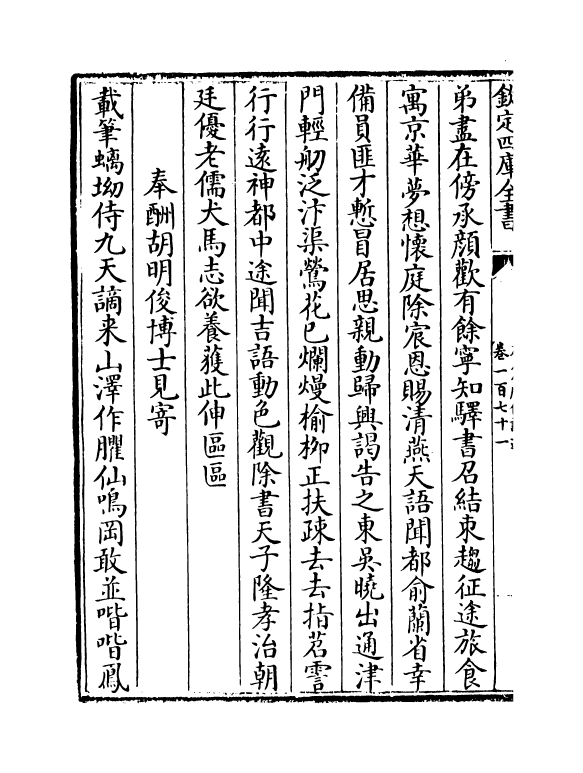 欽定四庫全書
卷一百七十一
弟盡在傍承顔歡有餘寧知驛書召結束趨征途旅食
寓京華夢想懷庭除宸恩賜清燕天語聞都俞蘭省幸
備員匪才慙冒居思親動歸興謁告之東吳曉出通津
門輕舠泛汴渠鶯花已爛熳榆柳正扶疎去去指苕霅
行行遠神都中途聞吉語動色觀除書天子隆孝治朝
廷優老儒犬馬志欲養獲此伸區區
奉酬胡明俊博士見寄
載筆螭坳侍九天謫来山澤作臞仙鳴岡敢並喈喈鳳